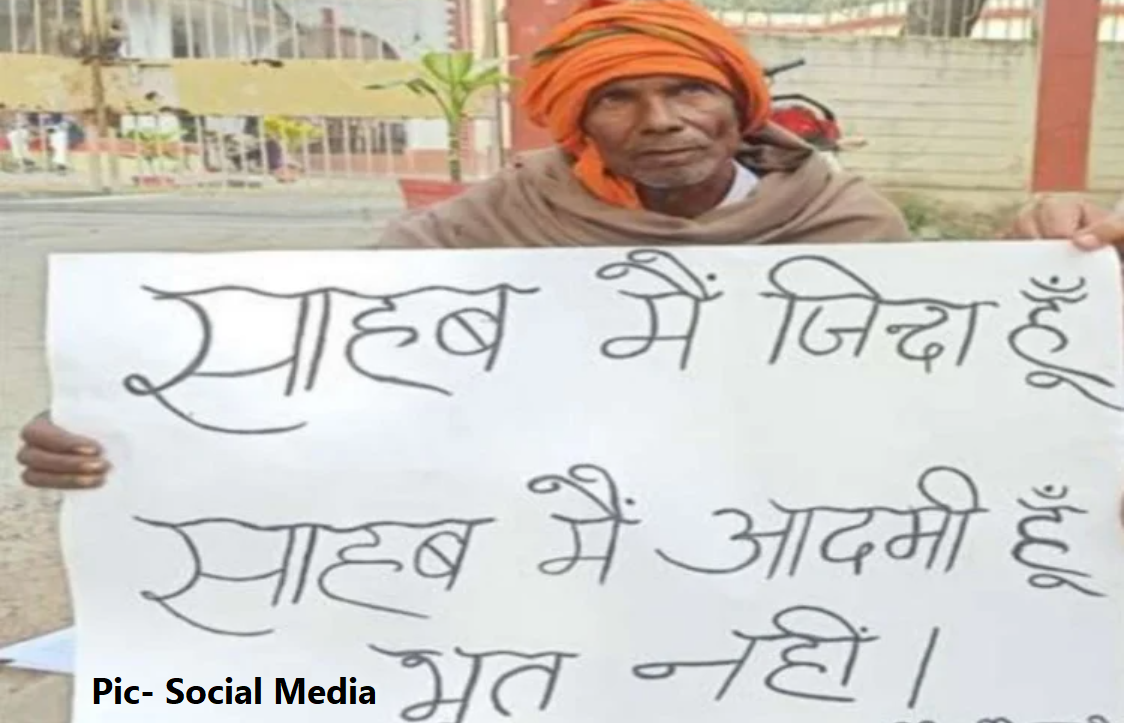 साहब मैं जिन्दा हूँ
साहब मैं आदमी हूँ
भूत नहीं।
Pic- Social Media